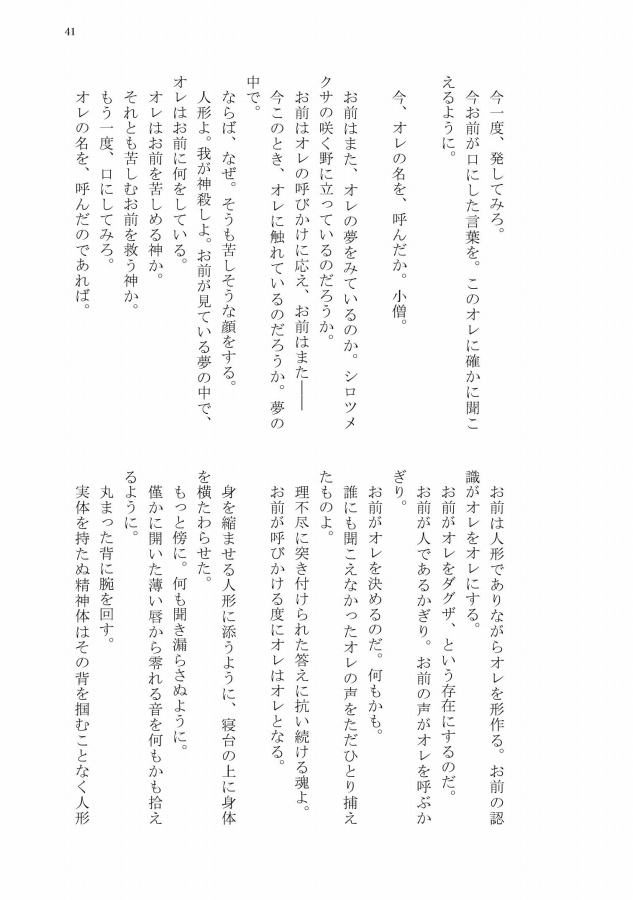 41
今一度、発してみろ。
今お前が口にした言葉を。このオレに確かに聞こ
えるように。
今、オレの名を、呼んだか。小僧。
お前はまた、オレの夢をみているのか。シロツメ
クサの咲く野に立っているのだろうか。
お前はオレの呼びかけに応え、お前はまた――
今このとき、オレに触れているのだろうか。夢の
中で。
ならば、なぜ。そうも苦しそうな顔をする。
人形よ。我が神殺しよ。お前が見ている夢の中で、
オレはお前に何をしている。
オレはお前を苦しめる神か。
それとも苦しむお前を救う神か。
もう一度、口にしてみろ。
オレの名を、呼んだのであれば。
お前は人形でありながらオレを形作る。お前の認
識がオレをオレにする。
お前がオレをダグザ、という存在にするのだ。
お前が人であるかぎり。お前の声がオレを呼ぶか
ぎり。
お前がオレを決めるのだ。何もかも。
誰にも聞こえなかったオレの声をただひとり捕え
たものよ。
理不尽に突き付けられた答えに抗い続ける魂よ。
お前が呼びかける度にオレはオレとなる。
身を縮ませる人形に添うように、寝台の上に身体
を横たわらせた。
もっと傍に。何も聞き漏らさぬように。
僅かに開いた薄い唇から零れる音を何もかも拾え
るように。
丸まった背に腕を回す。
実体を持たぬ精神体はその背を掴むことなく人形